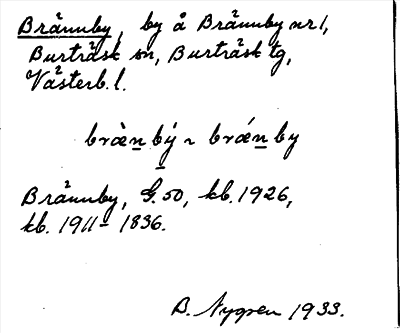 Brännby, by å Brännby nr 1,
Burträsk sn, Burträsk tg,
Västerb. l.
bræ̀n̲ bý̲ ~ brǽn̲ by
Brännby, G. 50, kb. 1926,
kb. 1911–1836.
B. Nygren 1933.